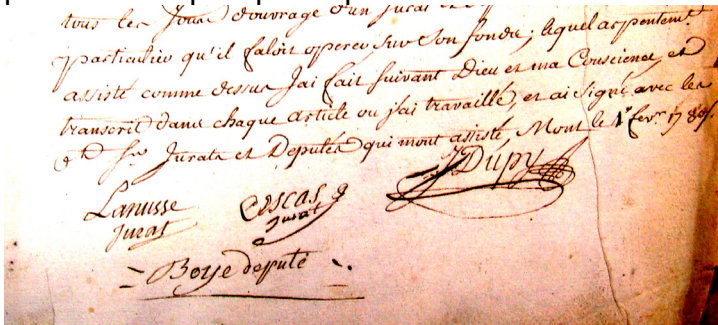 tous les Jours d'ouvrage d'un Jurat et
particulier qu'il faloit operer sur son fondz; lequel arpentemt.
assisté comme dessus Jai fait suivant Dieu et ma Conscience, et
transcrit dans chaque article ou j'ai travaillé, et ai signé avec les
Jurats et Deputés qui mont assisté, Mont le 1r fevr.
Dupuy
Lanusse Coscas
Jurat Jurat
Boye deputé